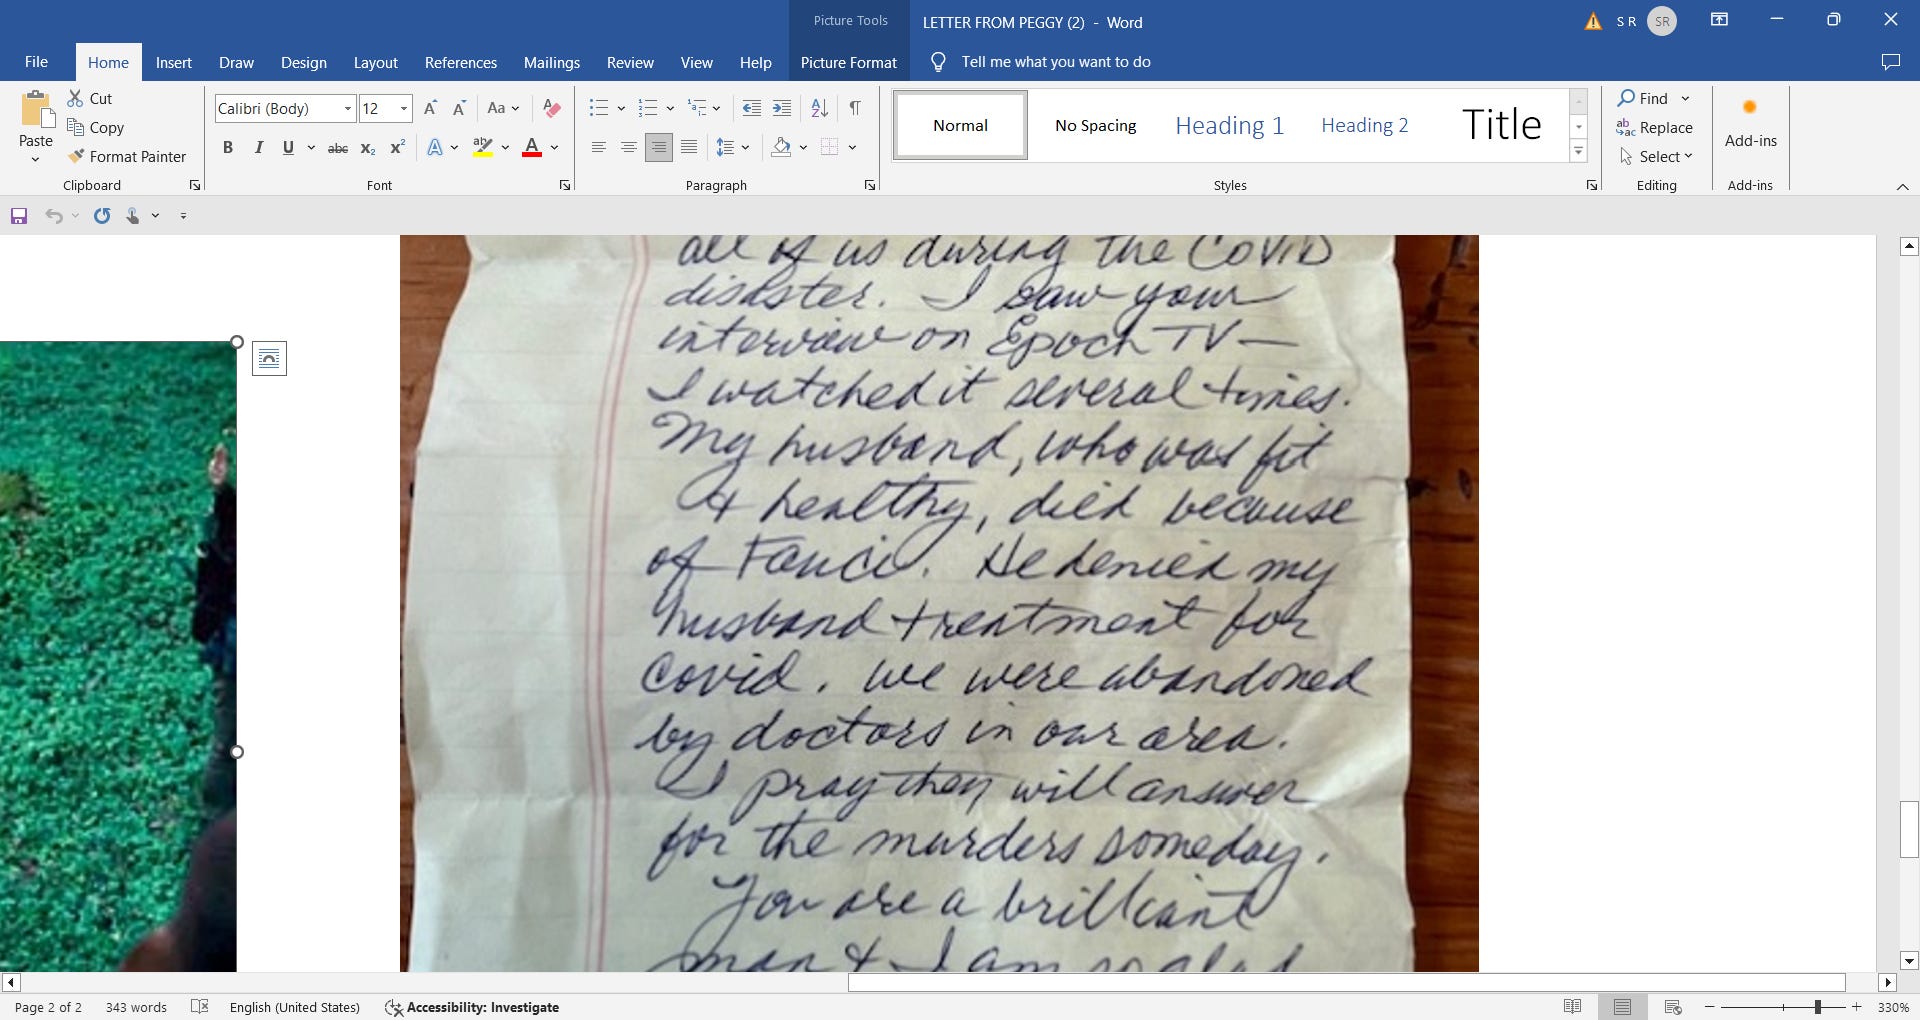 Picture Tools
LETTER FROM PEGGY (2) - Word
S R
SR
File
Home
Insert
Draw
Design
Layout
References
Mailings
Review
View
Help
Picture Format
Tell me what you want to do
Paste
Cut
Copy
Format Painter
Clipboard
Calibri (Body)
12
Font
Paragraph
Normal
No Spacing
Heading 1
Heading 2
Title
Styles
Find
Replace
Select
Editing
Add-ins
Add-ins
all of us during the COVID
disaster. I saw your
interview on Epoch TV —
I watched it several times.
My husband, who was fit
& healthy, died because
of Fauci. He denied my
husband treatment for
Covid. We were abandoned
by doctors in our area.
I pray they will answer
for the murders someday.
You are a brilliant
man & I am so glad
Page 2 of 2
343 words
English (United States)
Accessibility: Investigate
330%